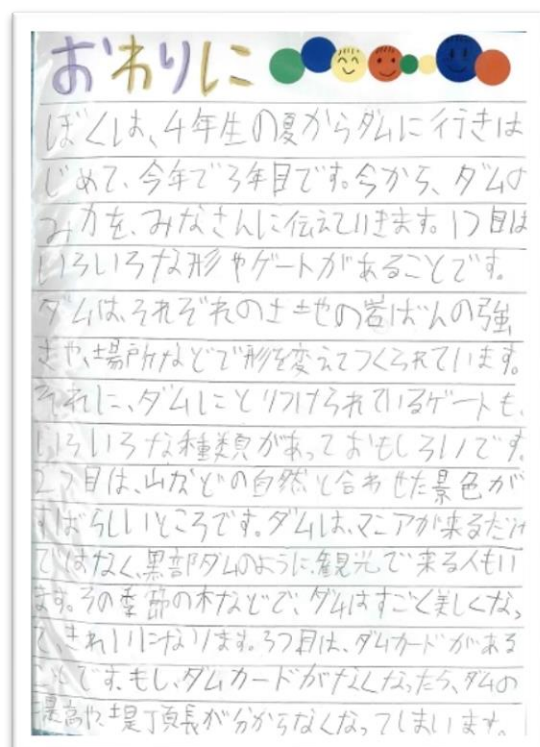 おわりに
ぼくは、4年生の夏からダムに行きは
じめて、今年で3年目です。今から、ダムの
み力を、みなさんに伝えていきます。1つ目は
いろいろな形やゲートがあることです。
ダムは、それぞれの土地の岩ばんの強
さや、場所などで形を変えてつくられています。
それに、ダムにとりつけられているゲートも、
いろいろな種類があっておもしろいです。
2つ目は、山などの自然と合わせた景色が
すばらしいところです。ダムは、マニアが来るだけ
ではなく、黒部ダムのように、観光で来る人もい
ます。その季節の木などで、ダムはすごく美しくなっ
て、きれいになります。3つ目は、ダムカードがある
ことです。もし、ダムカードがなくなったら、ダムの
堤高や、堤頂長が分からなくなってしまいます。